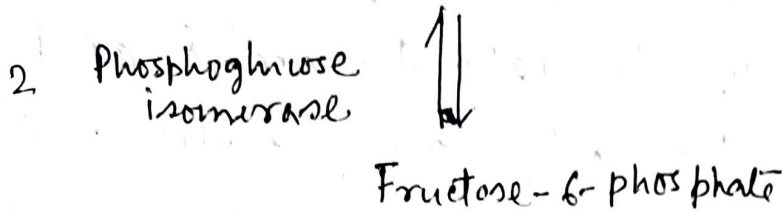 2 Phosphoglucose
isomerase
Fructose-6-phosphate